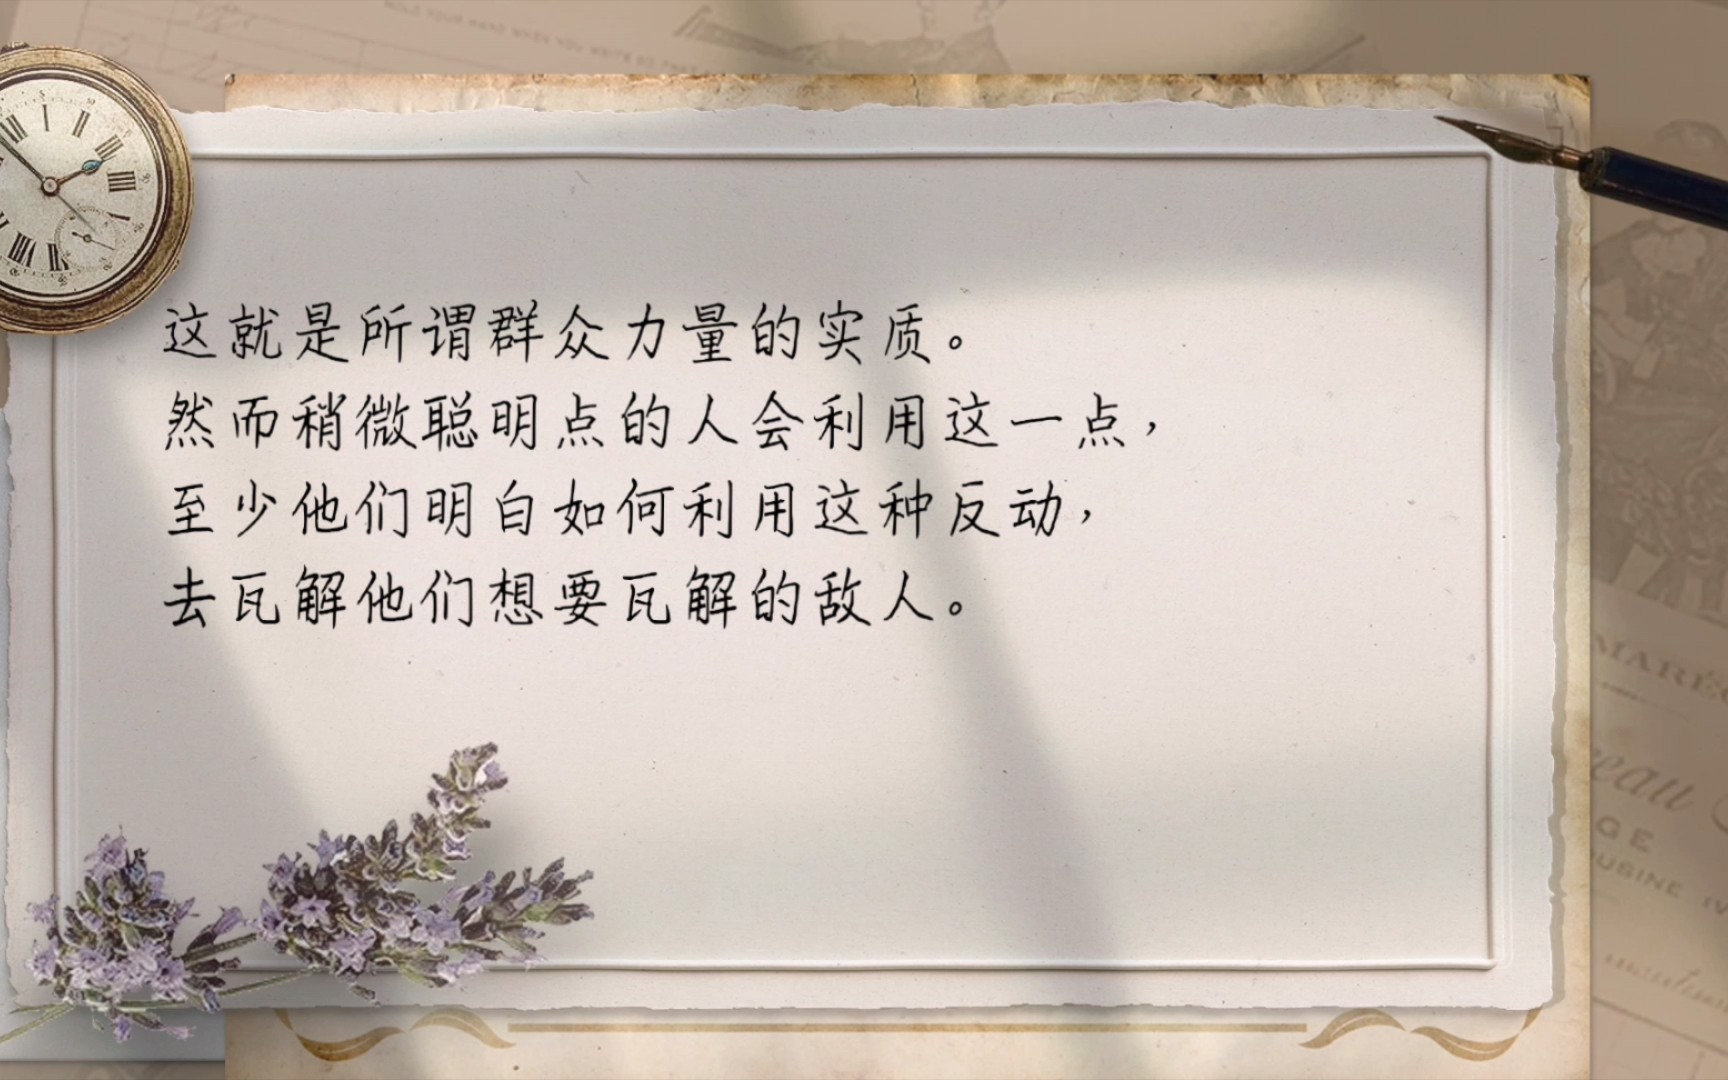 这就是所谓群众力量的实质。
然而稍微聪明点的人会利用这一点，
至少他们明白如何利用这种反动，
去瓦解他们想要瓦解的敌人。